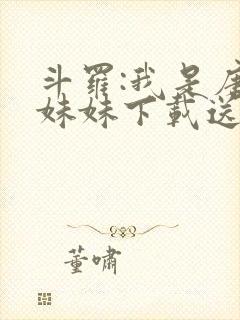 斗羅:我是唐
妹妹下載送
董嘯